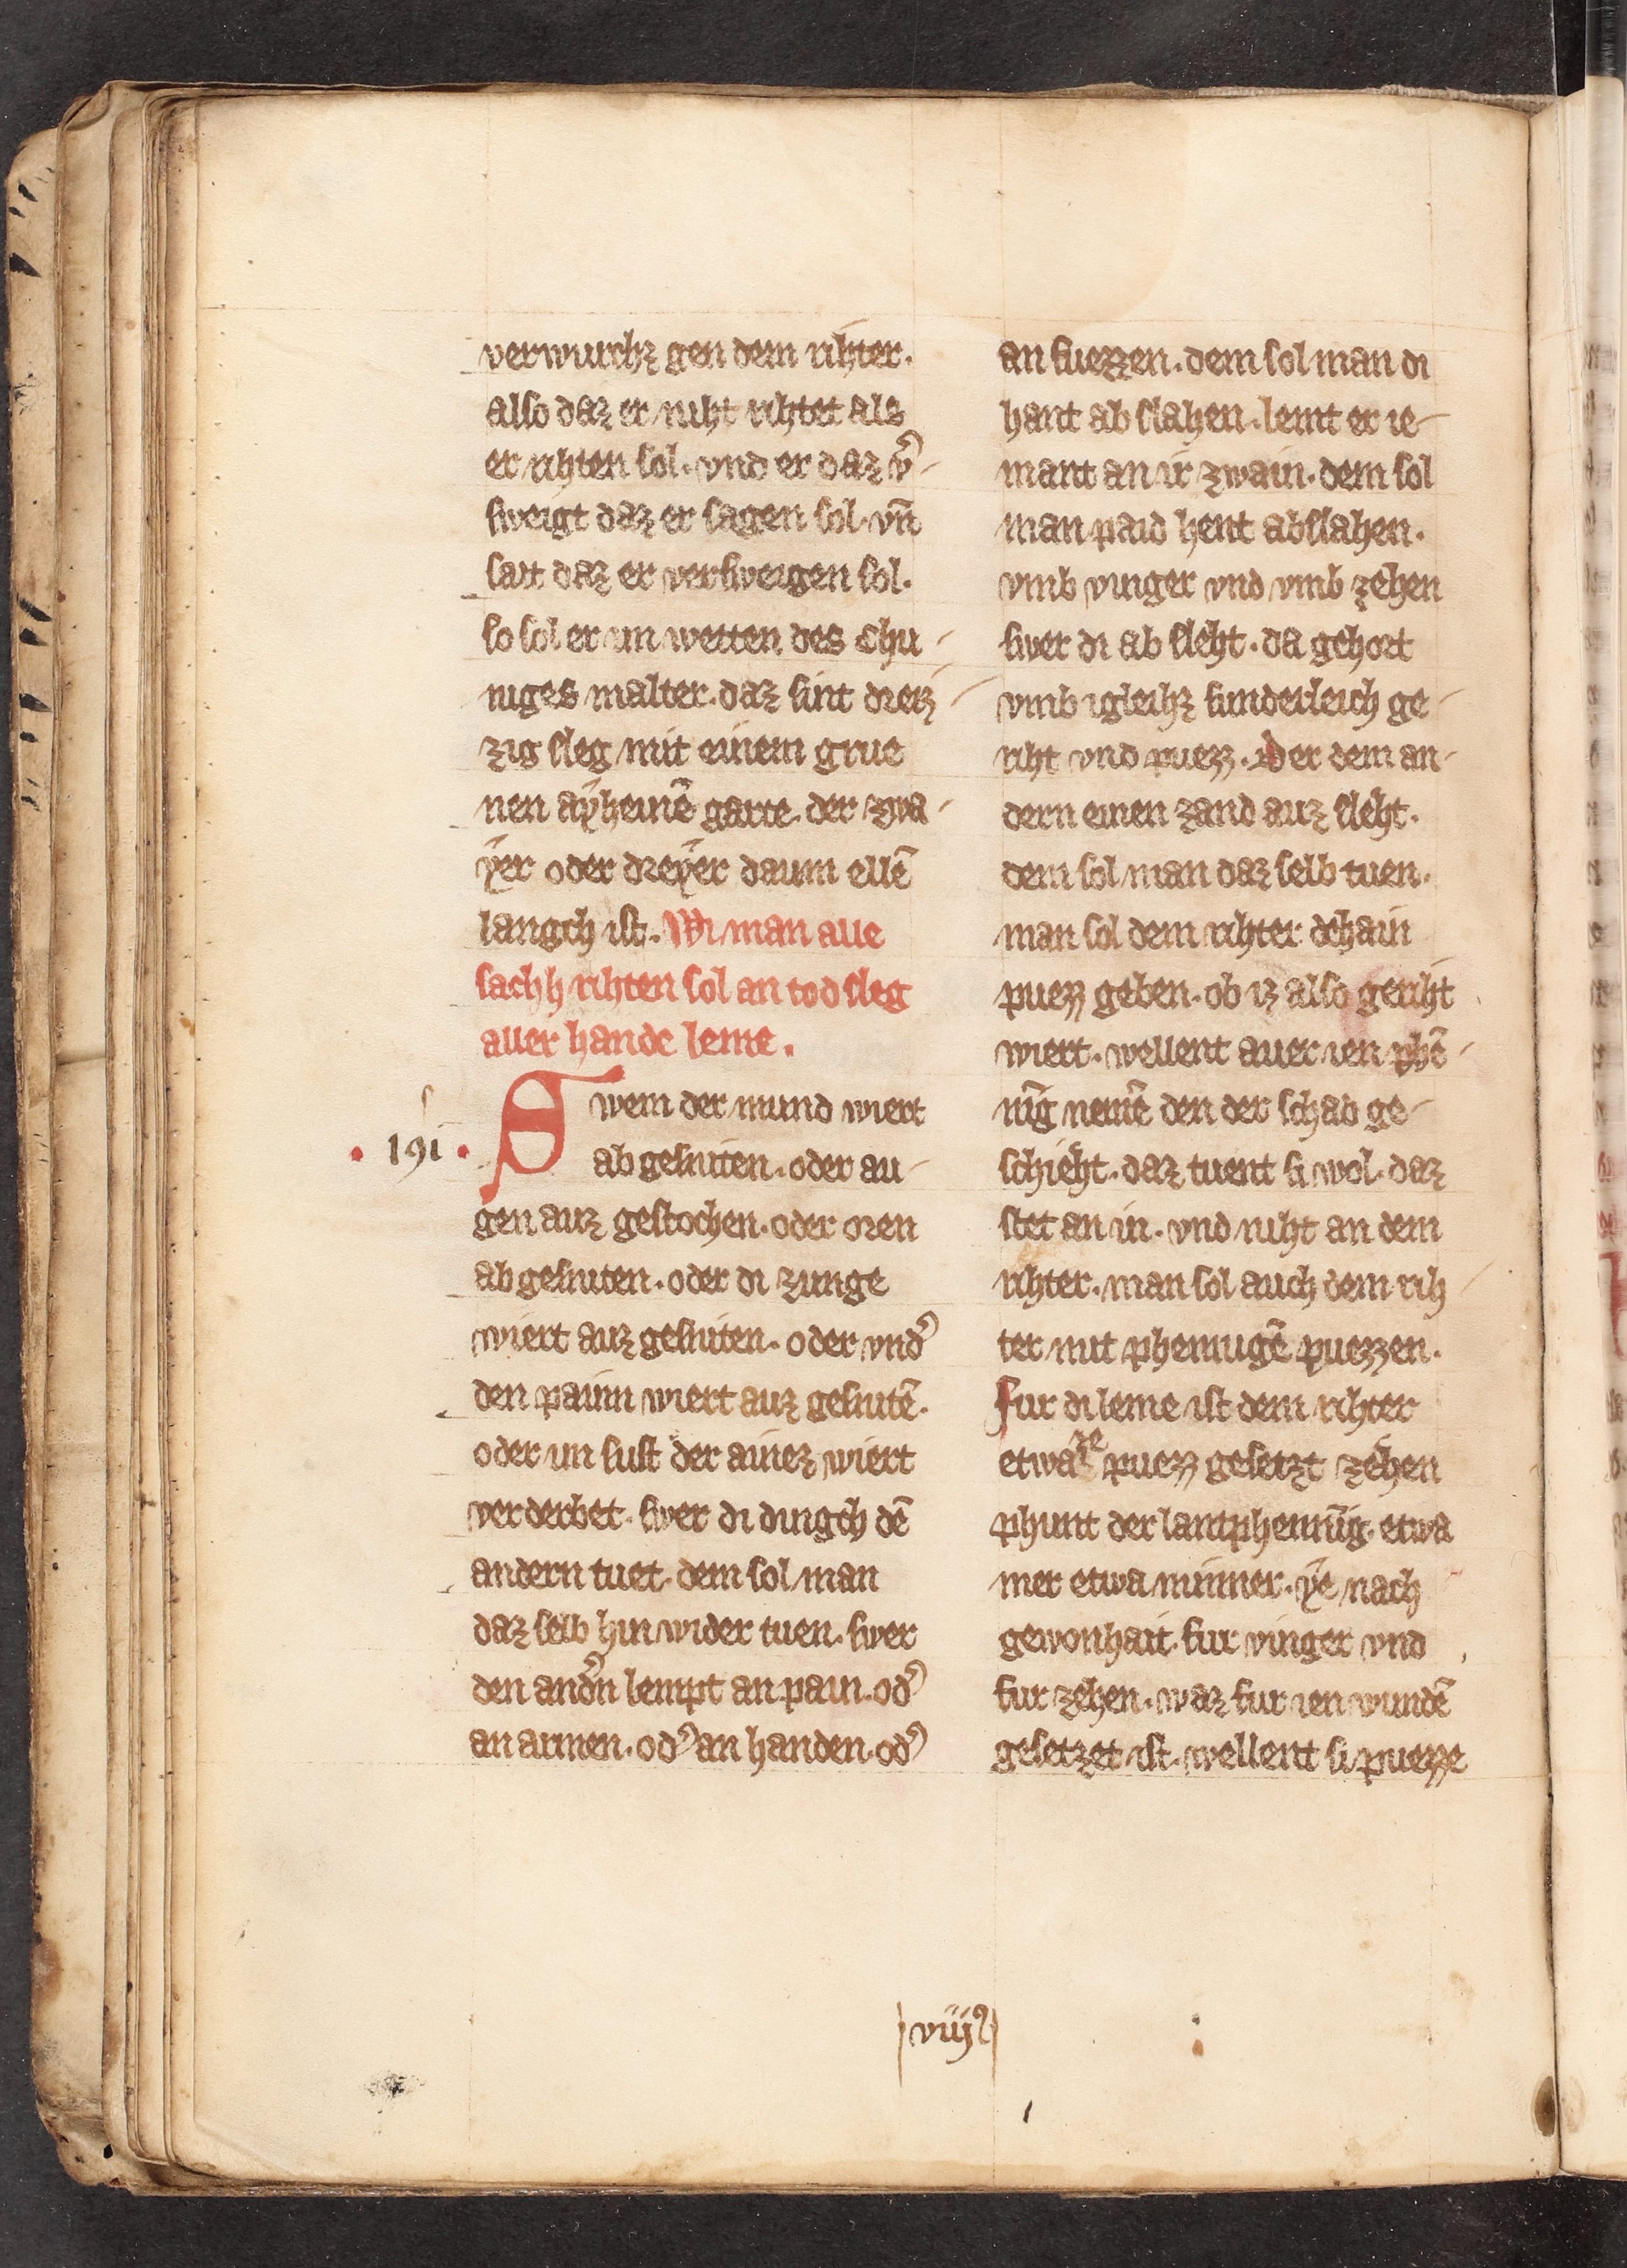 verwurchz gen dem rihter.
also daz er niht rihtet als
er rihten sol. vnd er daz v͛-
sweigt daz er sagen sol. vn̄
sait daz er versweigen sol.
so sol er im wetten des chu-
niges malter. daz sint dreiz-
zig sleg mit einem grue
nen aÿheinē garte. der zwa-
ÿer oder dreÿer daum ellē
langch ist. Wi man alle
sachh rihten sol an tod sleg
aller hande leme.
Swem der mund wiert
· 191 ·
ab gesniten. oder au-
gen auz gestochen. oder oren
ab gesniten. oder di zunge
wiert auz gesniten. oder vnd͛
den paiin wiert auz gesnitē.
oder im sust der ainez wiert
verderbet. swer di dingch dē
andern tuet. dem sol man
daz selb hin wider tuen. swer
den and͛n lempt an pain. od͛
an armen. od͛ an handen. od͛
an fuezzen. dem sol man di
hant ab slahen. lemt er ie-
mant an ir zwain. dem sol
man paid hent abslahen.
vmb vinger vnd vmb zehen
swer di ab sleht. da gehort
vmb igleihz sunderleich ge-
riht vnd puezz. Der dem an-
dern einen zand auz sleht.
dem sol man daz selb tuen.
man sol dem rihter dehain
puezz geben. ob iz also geriht
wiert. wellent auer ien phē-
nīg nemē den der schad ge-
schieht. daz tuent si wol. daz
stet an in. vnd niht an dem
rihter. man sol auch dem rih-
ter mit phennigē puezzen.
Fur di leme ist dem rihter
etwa puezz gesetzt zehen
phunt der lantphennīg. etwa
mer etwa minner. ÿe nach
gewonhait. fur vinger vnd
fur zehen. waz fur ien wundē
gesetzet ist. wellent si puezze
viij⁹